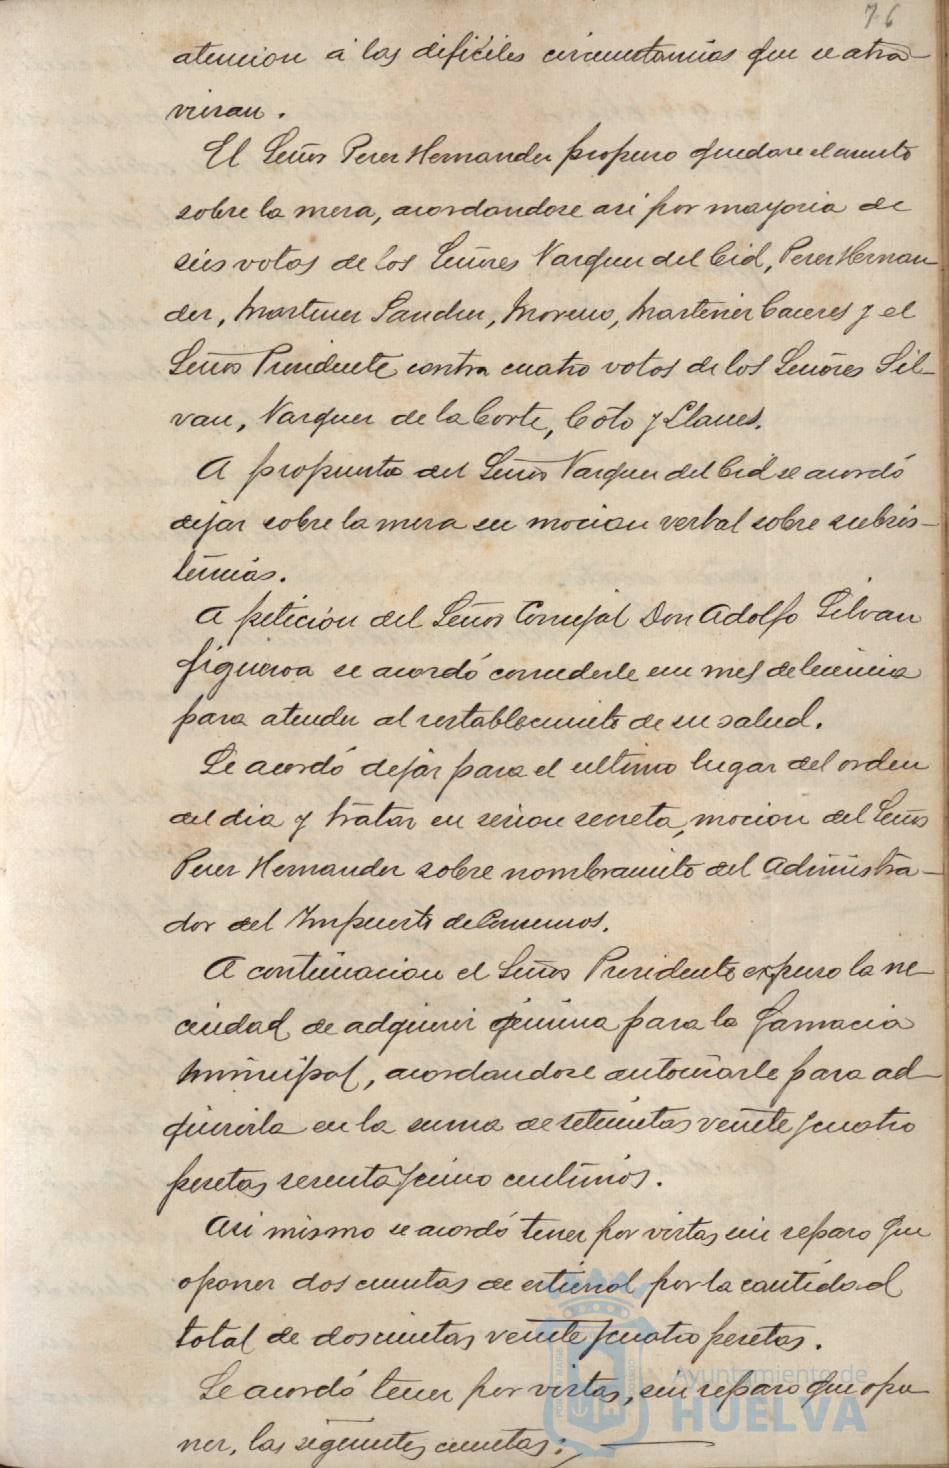 76
atencion á las dificiles circunstancias que se atra-
viesan.
El Señor Perez Hernandez propuso quedase el asunto
sobre la mesa, acordandose asi por mayoria de
seis votos de los Señores Vazquez del Cid, Perez Hernan
dez, Martinez Sanchez, Moreno, Martinez Caceres y el
Señor Presidente contra cuatro votos de los Señores Sil-
van, Vazquez de la Corte, Coto y Llanes.
A propuesta del Señor Vazquez del Cid se acordó
dejar sobre la mesa su mocion verbal sobre subsis-
tencias.
A petición del Señor Concejal Don Adolfo Silvan
Figueroa se acordó concederle un mes de licencia
para atender al restablecimiento de su salud.
Se acordó dejar para el ultimo lugar del orden
del dia y tratar en sesion secreta, mocion del Señor
Perez Hernandez sobre nombramiento del Administra-
dor del Impuesto de Consumos.
A continuacion el Señor Presidente expuso la ne-
cesidad de adquirir quinina para la Farmacia
Municipal, acordandose autorizarle para ad-
quirirla en la suma de setecientas veinte y cuatro
pesetas sesenta y cinco centimos.
Asi mismo se acordó tener por vistas sin reparo que
oponer dos cuentas de estiercol por la cantidad
total de doscientas veinte y cuatro pesetas.
Se acordó tener por vistas, sin reparo que opo
ner, las siguientes cuentas:
Ayuntamiento de
HUELVA